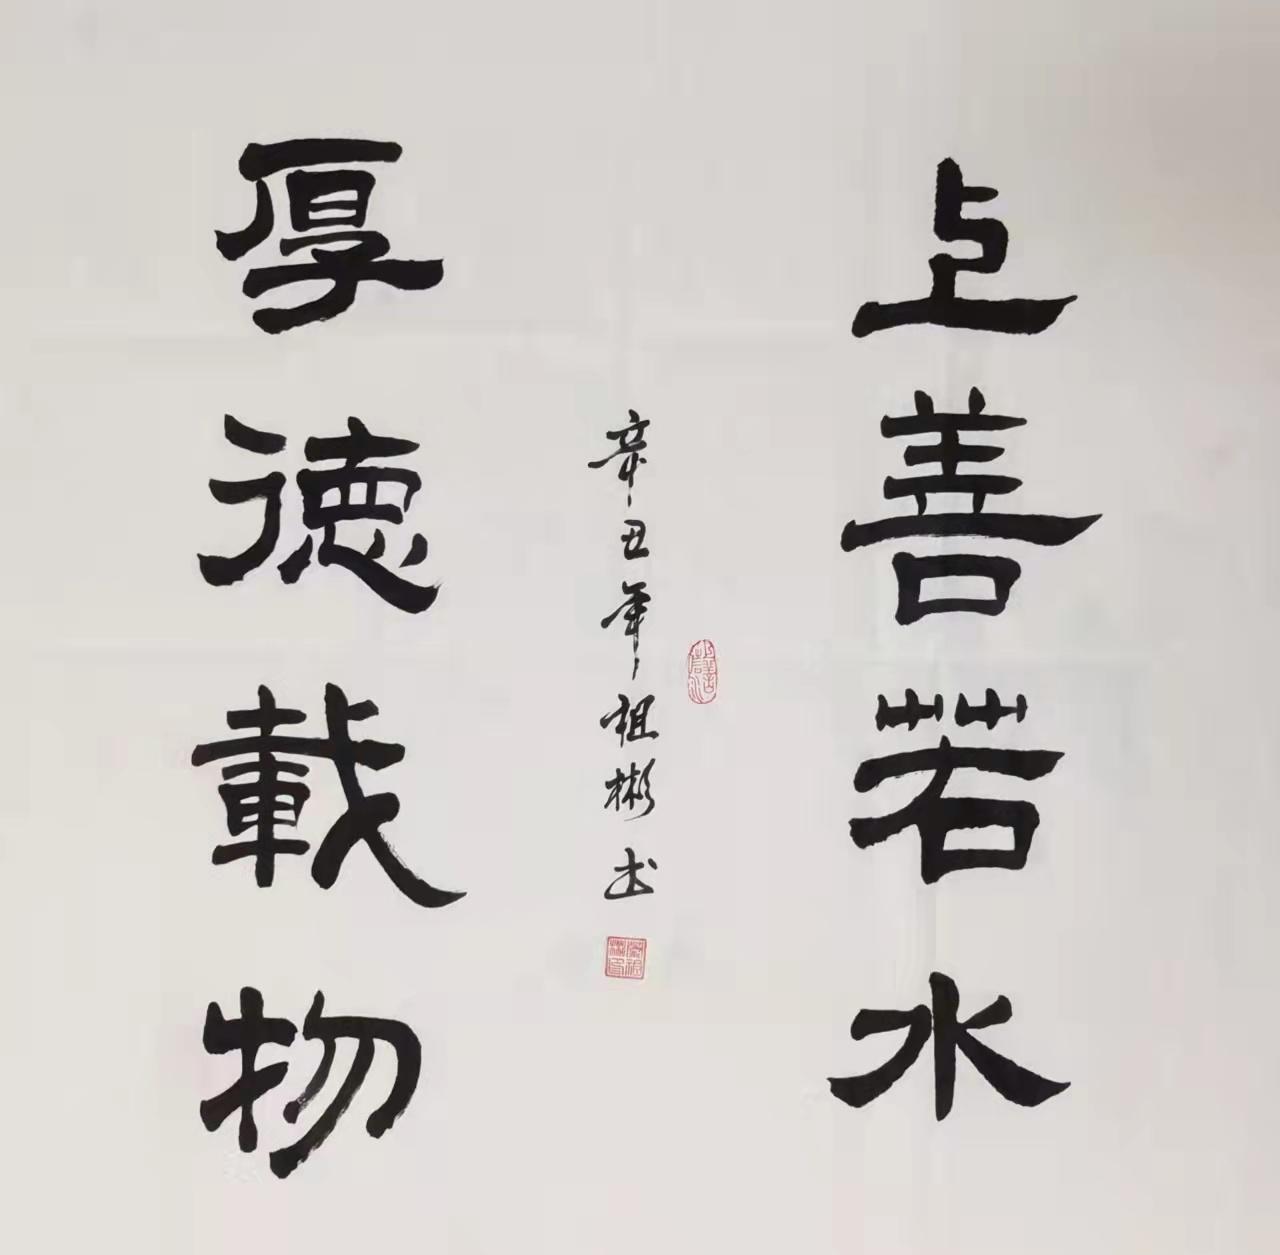 上善若水
厚德載物
辛丑年祖彬书